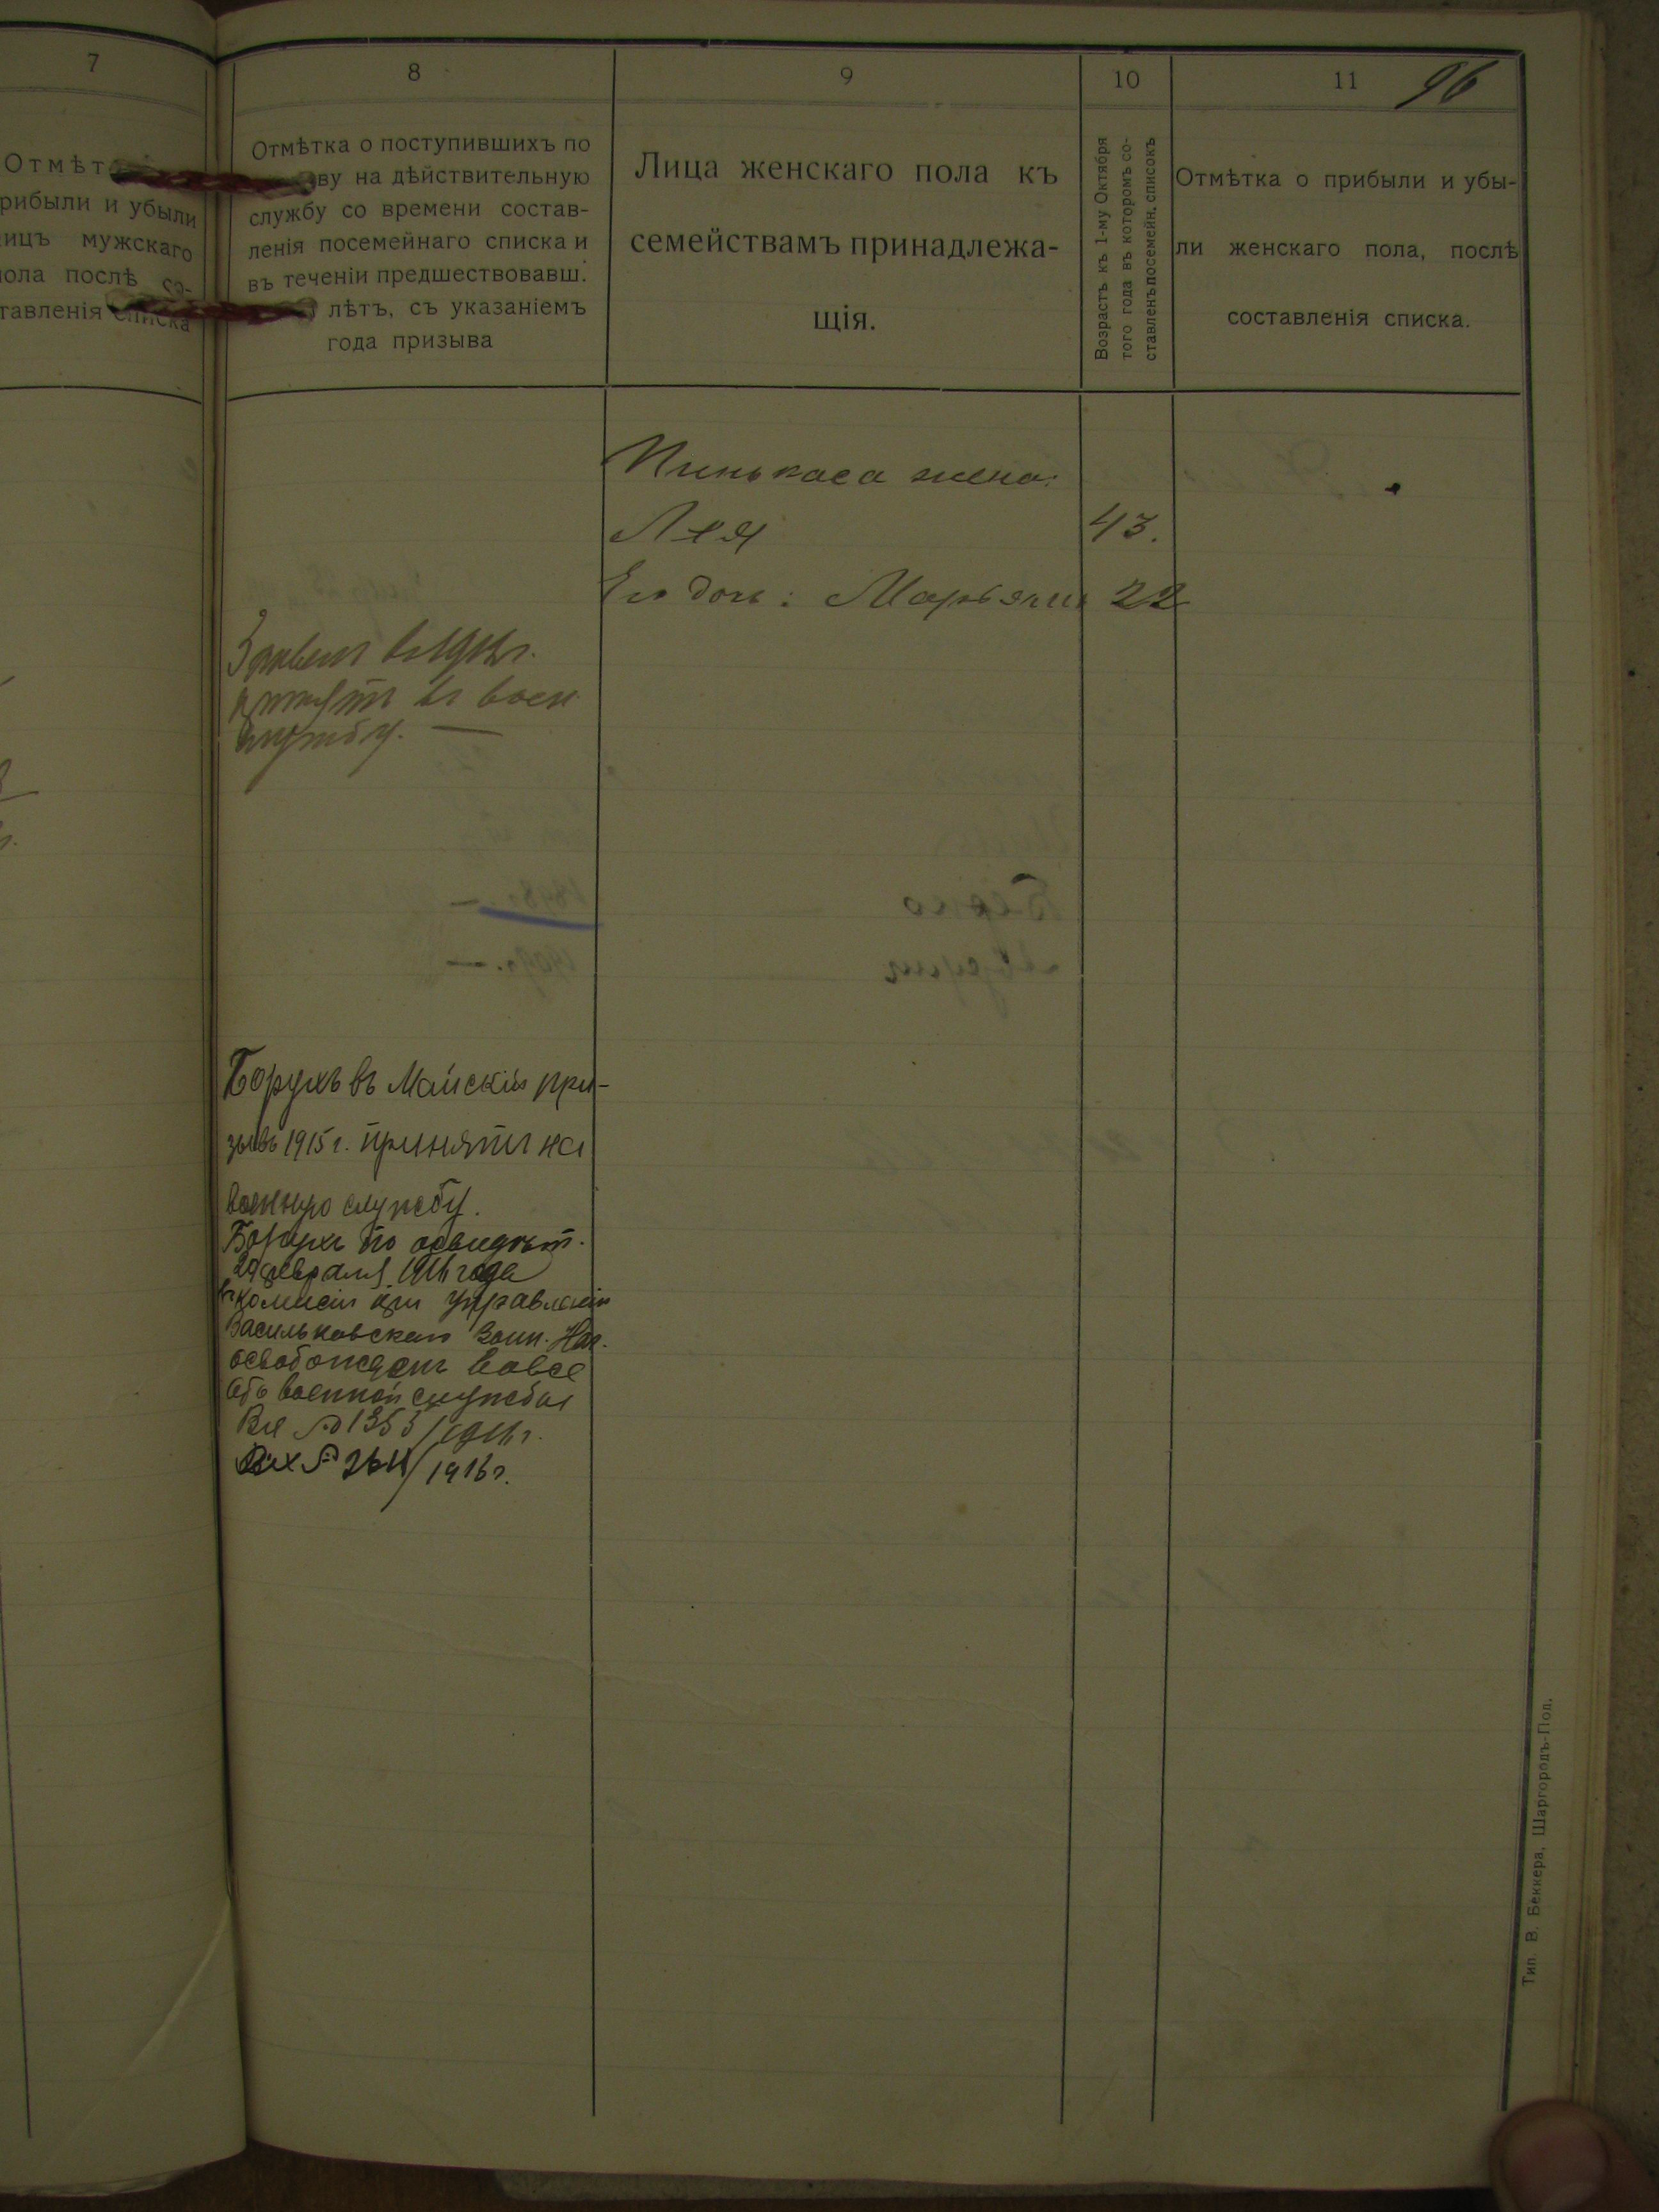 7
8
9
10
11
96
Отмѣт
рибыли и убыли
ицъ мужскаго
пола послѣ со-
тавленія списка
Отмѣтка о поступившихъ по
ву на дѣйствительную
службу со времени состав-
ленія посемейнаго списка и
въ теченіи предшествовавш.
лѣтъ, съ указаніемъ
года призыва
Лица женскаго пола къ
семействамъ принадлежа-
щія.
Возрастъ къ 1-му Октября
того года въ которомъ со-
ставленъ посемейн. списокъ
Отмѣтка о прибыли и убы-
ли женскаго пола, послѣ
составленія списка.
Пинькаса жена:
Лея 43.
Его дочь: Марьямъ 22
въ 1912г.
въ воен
службу. —
Борухъ въ Майскій при-
зывъ 1915 г. принятъ на
военную службу.
Борухъ по освидѣт.
29 февраля 1916 года
въ комисіи при управленіи
Васильковскаго Воин. Нач.
освобожденъ вовсе
отъ военной службы
Вх № 1353/1916г.
Вх № 2611/1916г.
Тип. В. Беккера, Шаргородъ-Под.